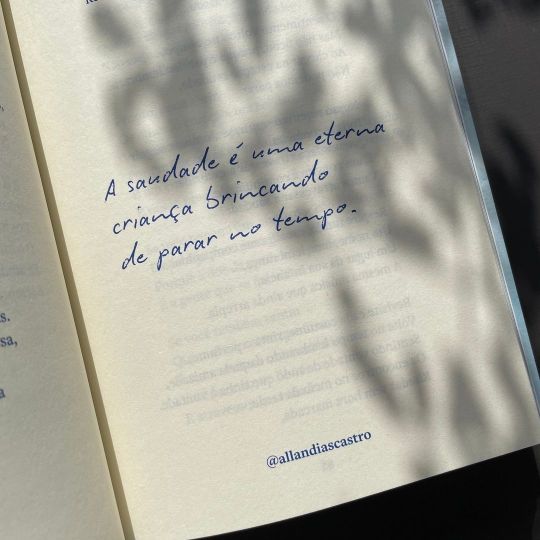 A saudade é uma eterna
criança brincando
de parar no tempo.
s.
sa,
a
@allandiascastro